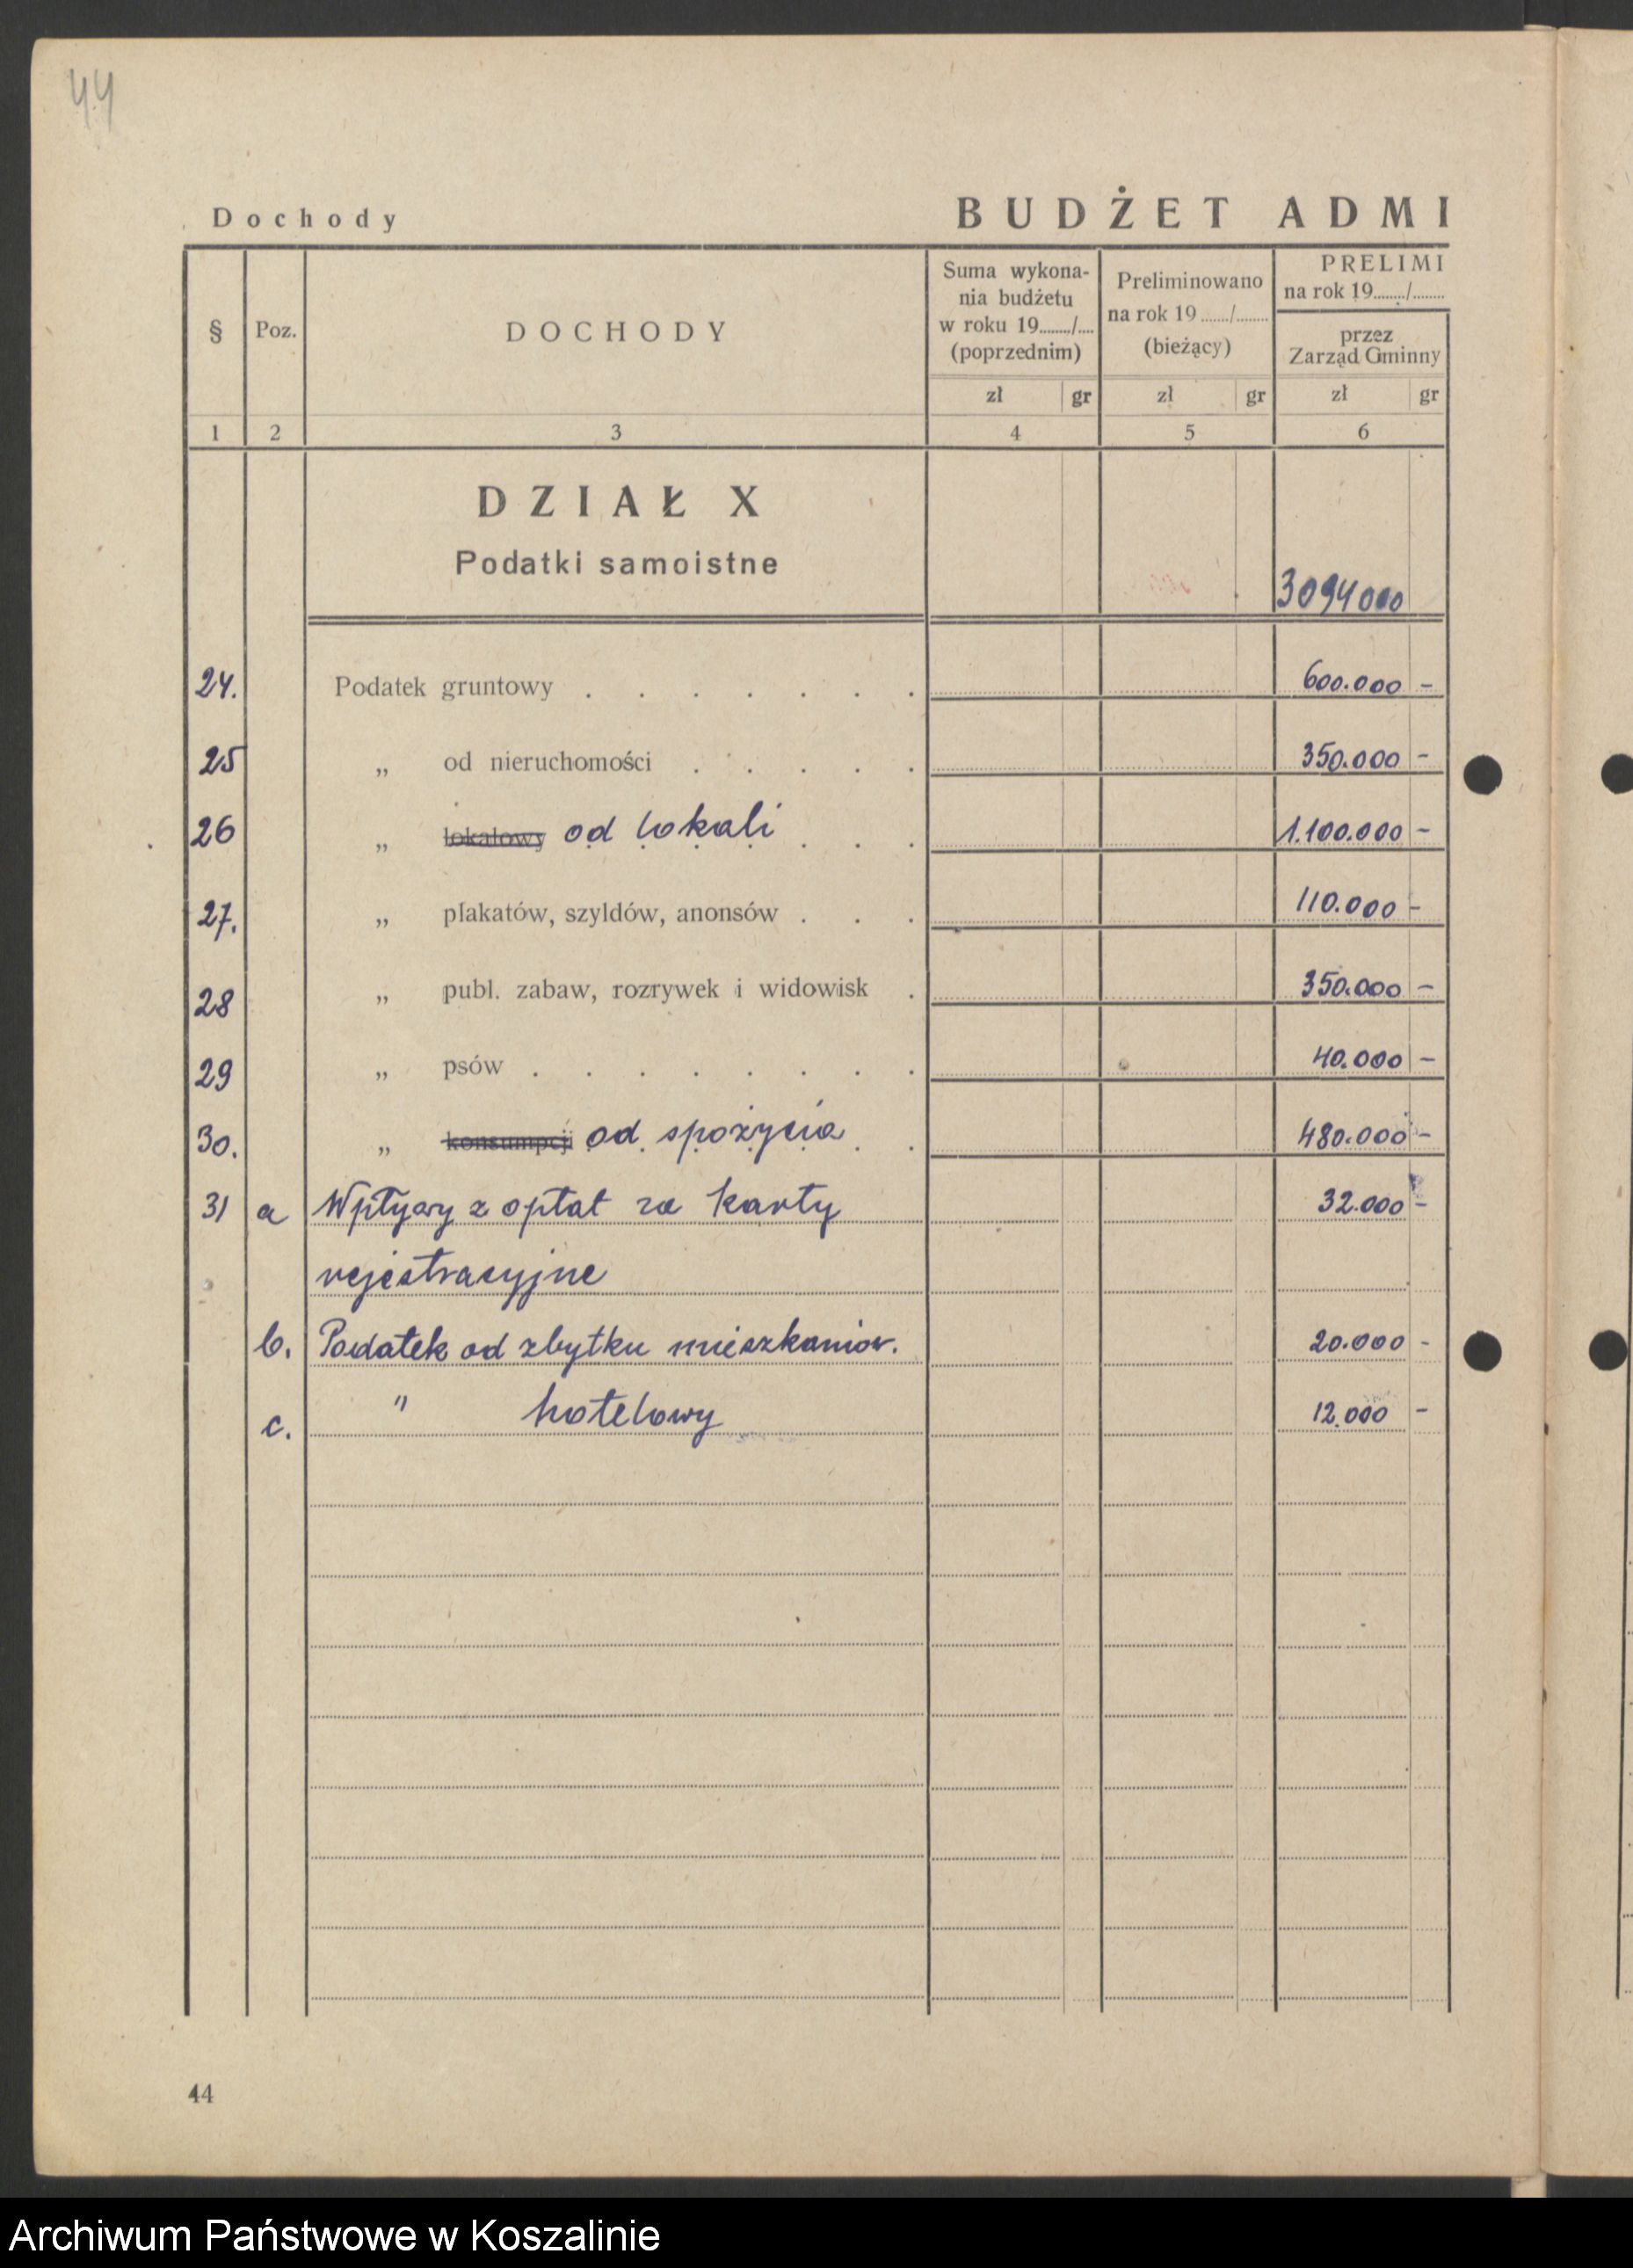 44
Dochody BUDŻET ADMI
§ Poz. DOCHODY Suma wykona- Preliminowano PRELIMI
nia budżetu na rok 19....../...... na rok 19....../......
w roku 19....../.... (bieżący) przez
(poprzednim) Zarząd Gminny
zł gr zł gr zł gr
1 2 3 4 5 6
DZIAŁ X
Podatki samoistne 3094000
24. Podatek gruntowy . . . . . . . 600.000 -
25 „ od nieruchomości . . . . . 350.000 -
26 „ lokalowy od lokali . . . 1.100.000 -
27. „ plakatów, szyldów, anonsów . . . 110.000 -
28 „ publ. zabaw, rozrywek i widowisk . 350.000 -
29 „ psów . . . . . . . . 40.000 -
30. „ konsumpcji od spożycia . . 480.000 -
31 a Wpływy z opłat za karty 32.000 -
rejestracyjne
b. Podatek od zbytku mieszkaniow. 20.000 -
c. " hotelowy 12.000 -
44
Archiwum Państwowe w Koszalinie